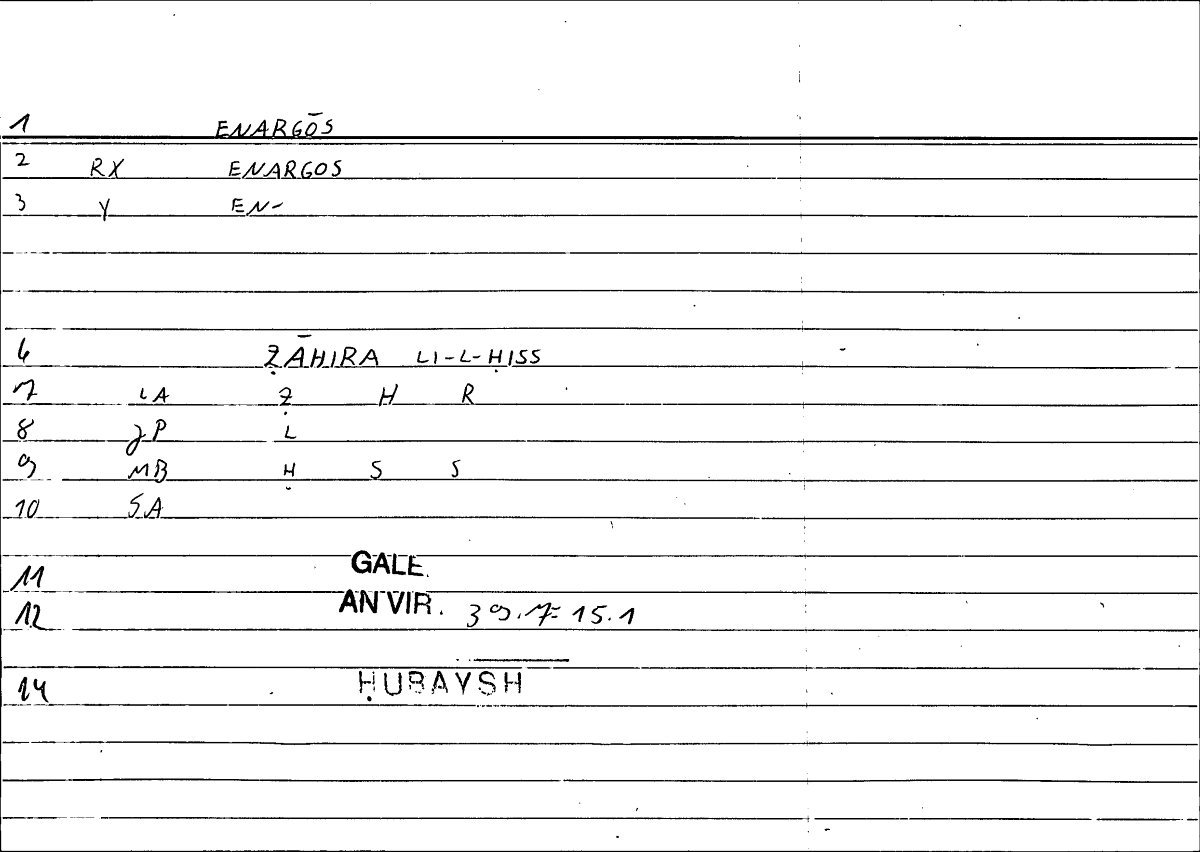 1 ENARGŌS
2 RX ENARGOS
3 Y EN-
6 ẒĀHIRA LI-L-ḤISS
7 LA Ẓ H R
8 JP L
9 MB Ḥ S S
10 SA
11 GALE.
12 AN VIR. 39.7-15.1
14 ḤUBAYSH